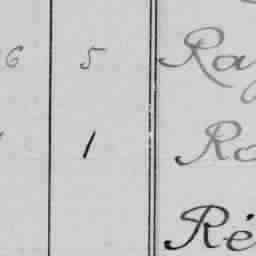 6 5 Ra
1 Ro
Ré